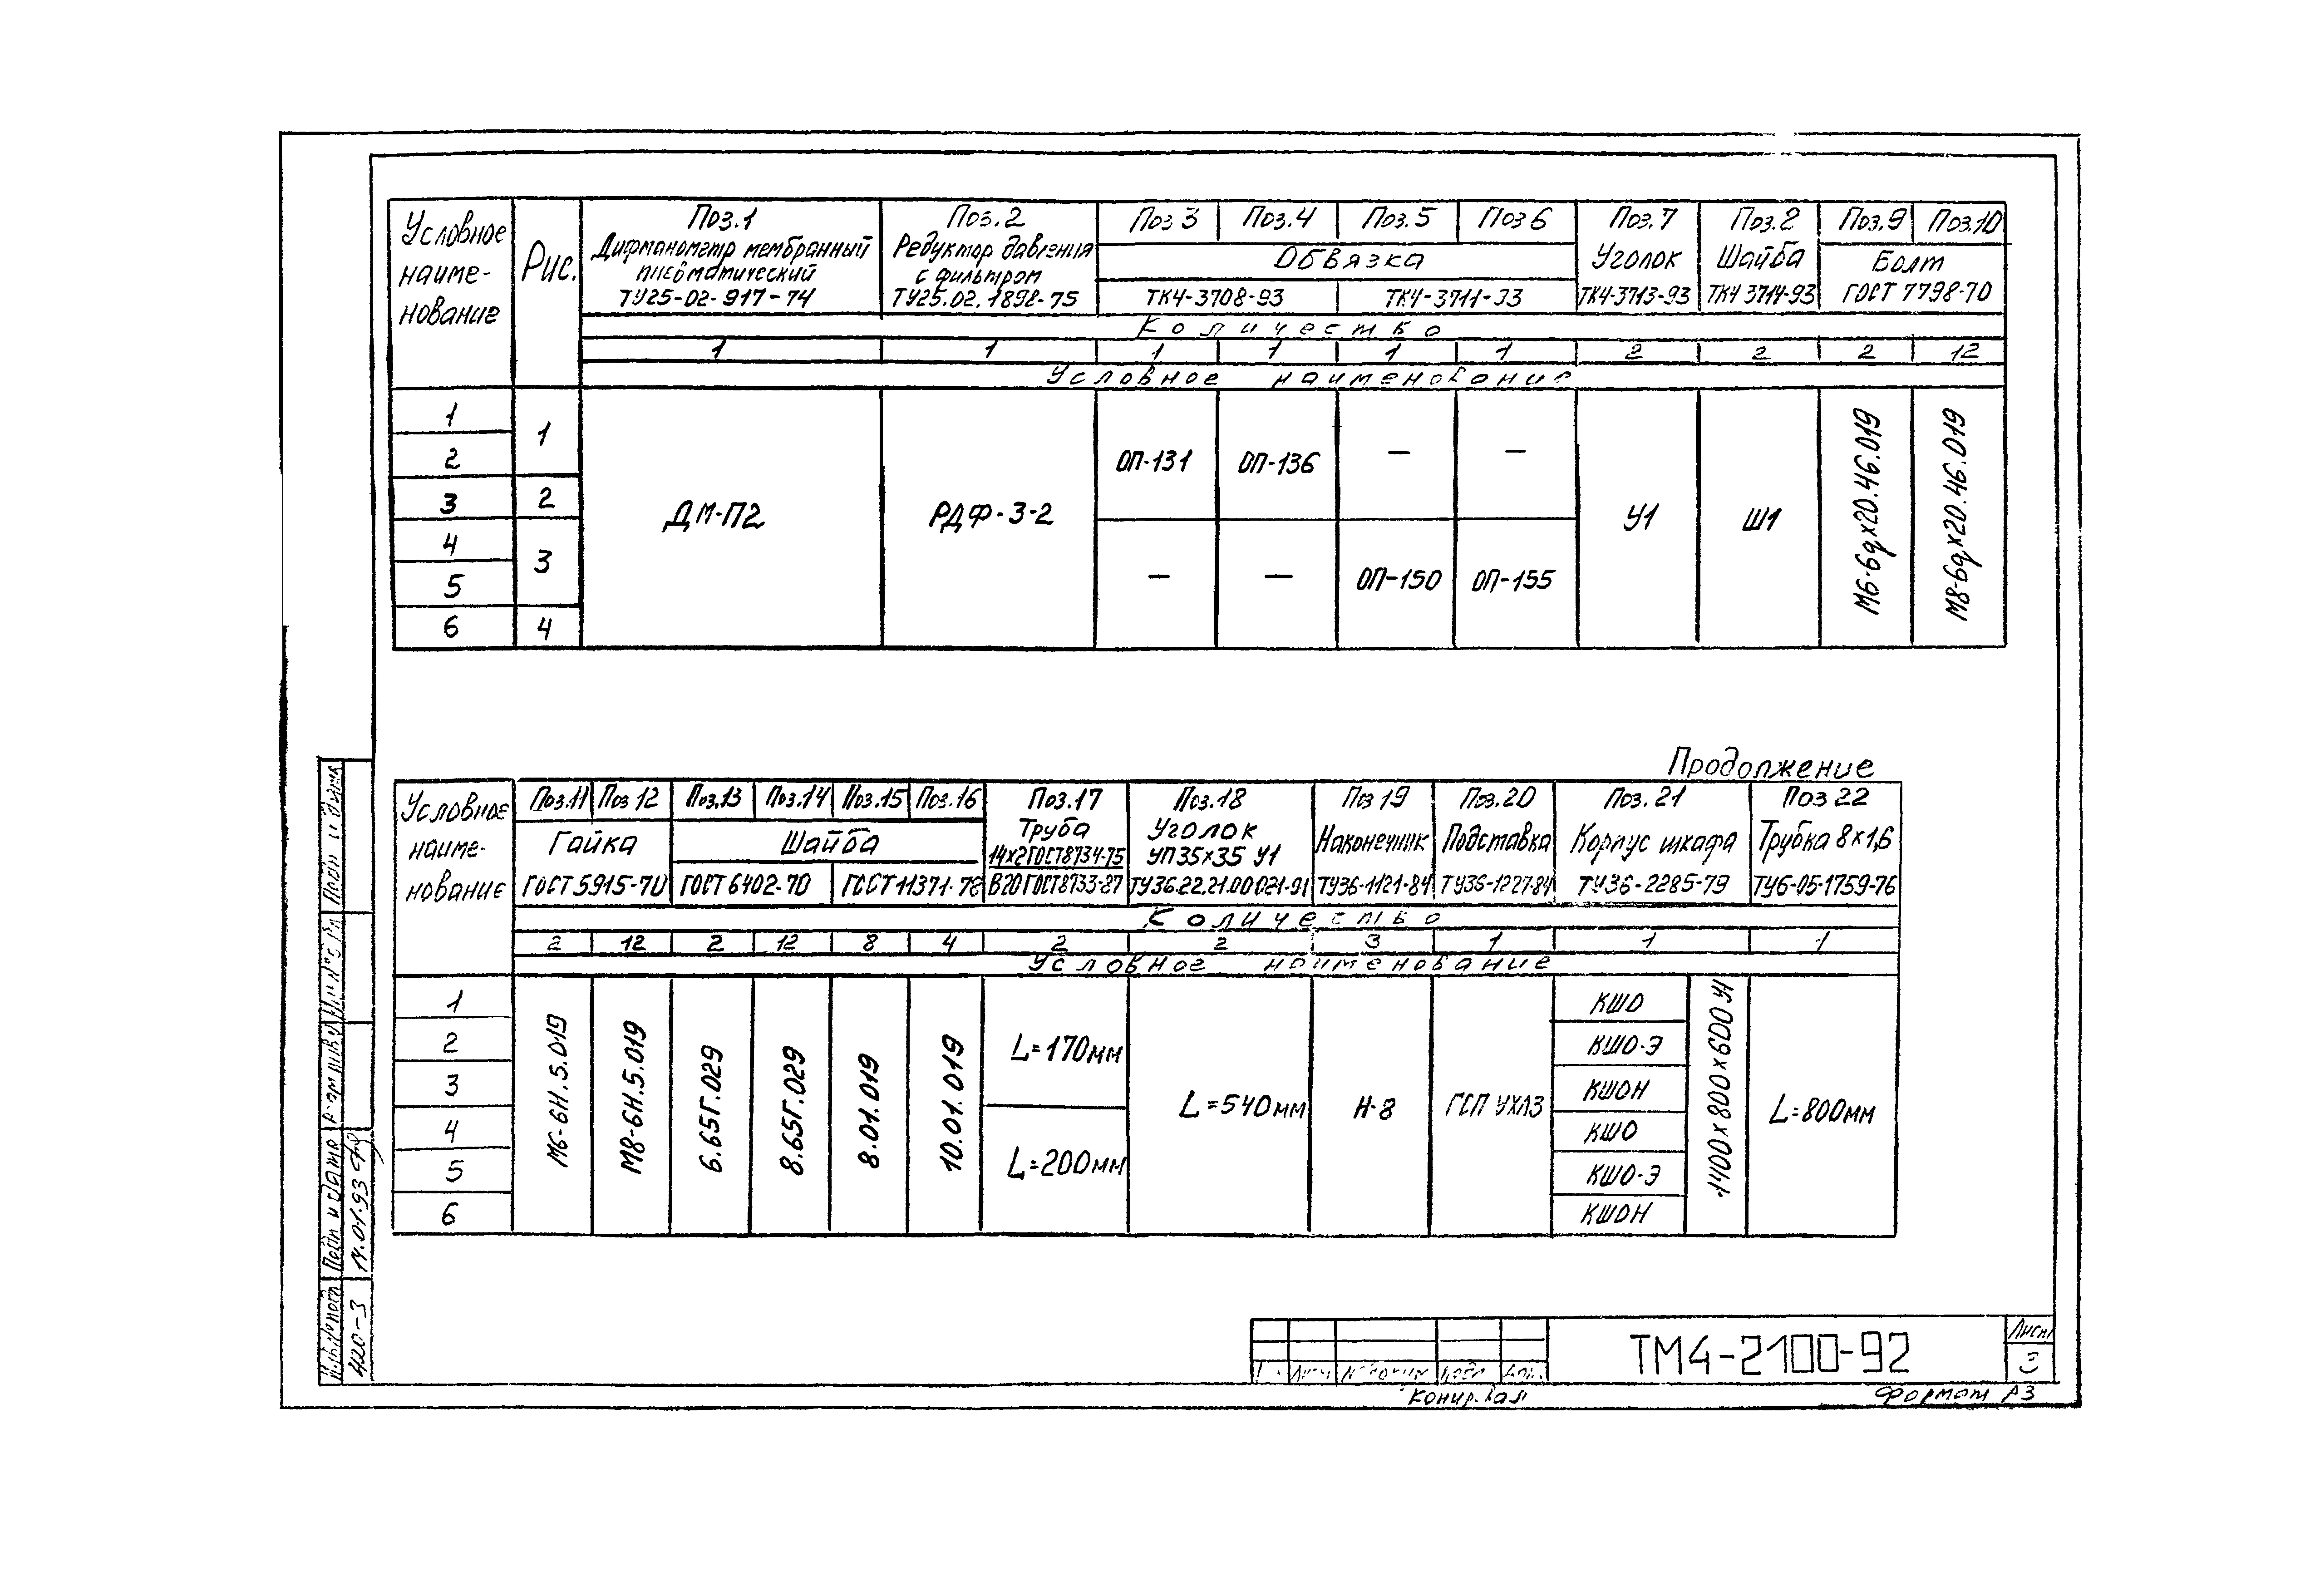 Условное наиме-нование
Рис.
Поз.1 Поз.2 Поз 3 Поз.4 Поз.5 Поз 6 Поз.7 Поз.2 Поз.9 Поз.10
Дифманометр мембранный пневматический ТУ25-02-917-74
Редуктор давления с фильтром ТУ25.02.1898-75
Обвязка
ТК4-3708-93 ТК4-3711-93
Уголок ТК4-3713-93
Шайба ТК4 3714-93
Болт ГОСТ 7798-70
Количество
1 1 1 1 1 1 2 2 2 12
Условное наименование
1 2 3 4 5 6
1 2 3 4
ДМ-П2
РДФ-3-2
ОП-131 ОП-136 — —
— — ОП-150 ОП-155
У1
Ш1
М6-6gх20.46.019
М8-6gх20.46.019
Продолжение
Условное наиме-нование
Поз.11 Поз 12 Поз.13 Поз.14 Поз.15 Поз.16 Поз.17 Поз.18 Поз 19 Поз.20 Поз.21 Поз 22
Гайка ГОСТ 5915-70
Шайба
ГОСТ 6402-70 ГОСТ 11371-78
Труба 14х2 ГОСТ 8734-75 В20 ГОСТ 8733-87
Уголок УП35х35 У1 ТУ36.22.21.00.021-91
Наконечник ТУ36-1121-84
Подставка ТУ36-1227-84
Корпус шкафа ТУ36-2285-79
Трубка 8х1,6 ТУ6-05-1759-76
Количество
2 12 2 12 8 4 2 2 3 1 1 1
Условное наименование
1 2 3 4 5 6
М6-6Н.5.019
М8-6Н.5.019
6.65Г.029
8.65Г.029
8.01.019
10.01.019
L=170мм
L=200мм
L=540мм
Н-8
ГСП УХЛ3
КШО
КШО-Э
КШОН
КШО
КШО-Э
КШОН
1400х800х600 У1
L=800мм
Подп и дата
14.01.93
420-3
ТМ4-2100-92
Лист
3
Копировал
Формат А3